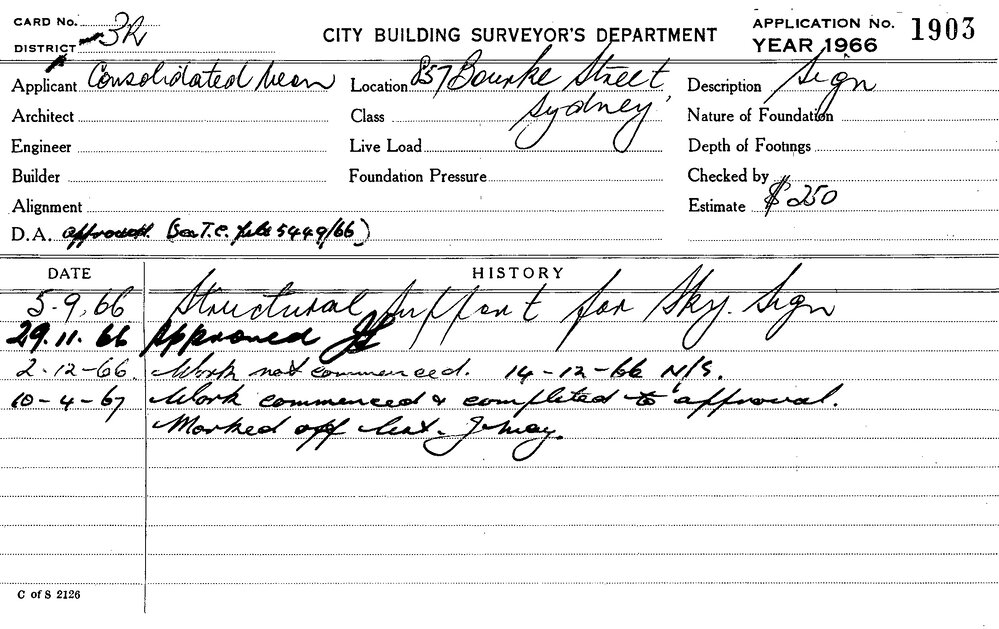 CARD No.
DISTRICT 3R
CITY BUILDING SURVEYOR'S DEPARTMENT
APPLICATION No. 1903
YEAR 1966
Applicant Consolidated Neon Location 857 Bourke Street Description Sign
Architect Class Sydney Nature of Foundation
Engineer Live Load Depth of Footings
Builder Foundation Pressure Checked by
Alignment Estimate $250
D.A. approved. (See T.C. file 5449/66)
DATE HISTORY
5-9.66 Structural Support for Sky. Sign
29.11.66 Approved
2-12-66. Work not commenced. 14-12-66 N/S.
10-4-67 Work commenced & completed to approval.
Marked off list.
C of S 2126